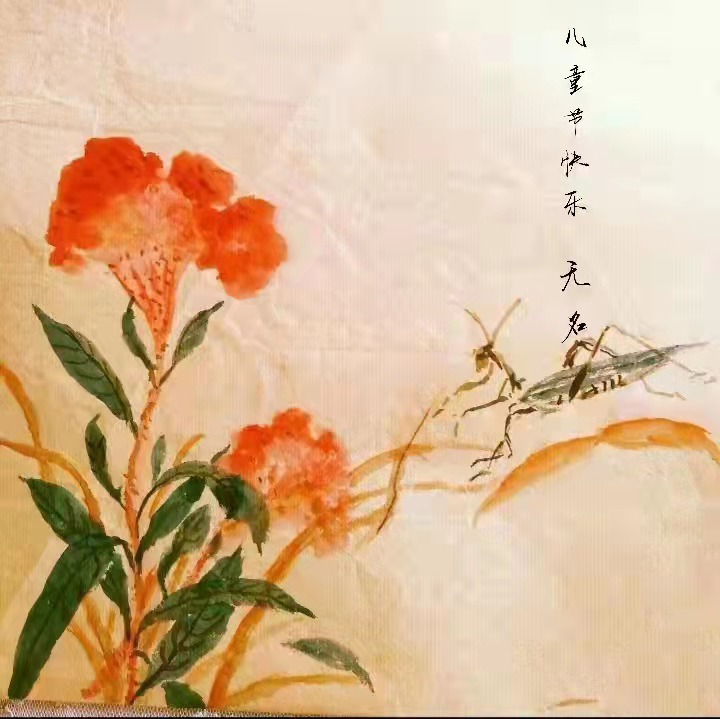 儿童节快乐 无名